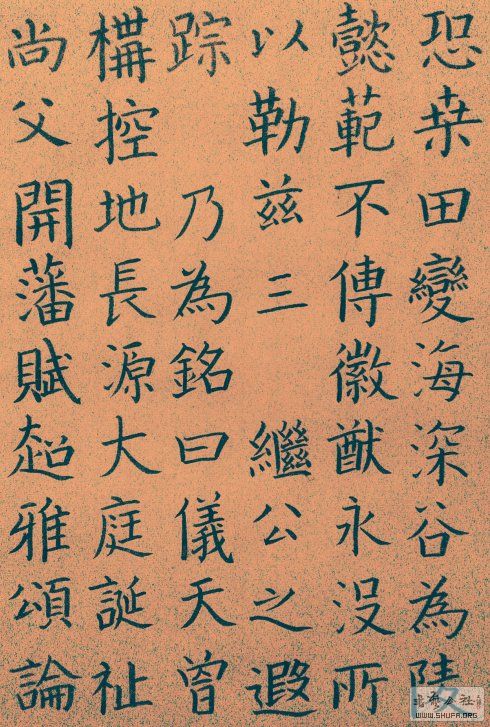 恐桒田變海深谷為陸
懿範不傳徽猷永没所
以勒兹三 繼公之遐
踪 乃為銘曰儀天曾
構控地長源大庭誕祉
尚父開藩賦超雅頌論
WWW.SHUFA.ORG